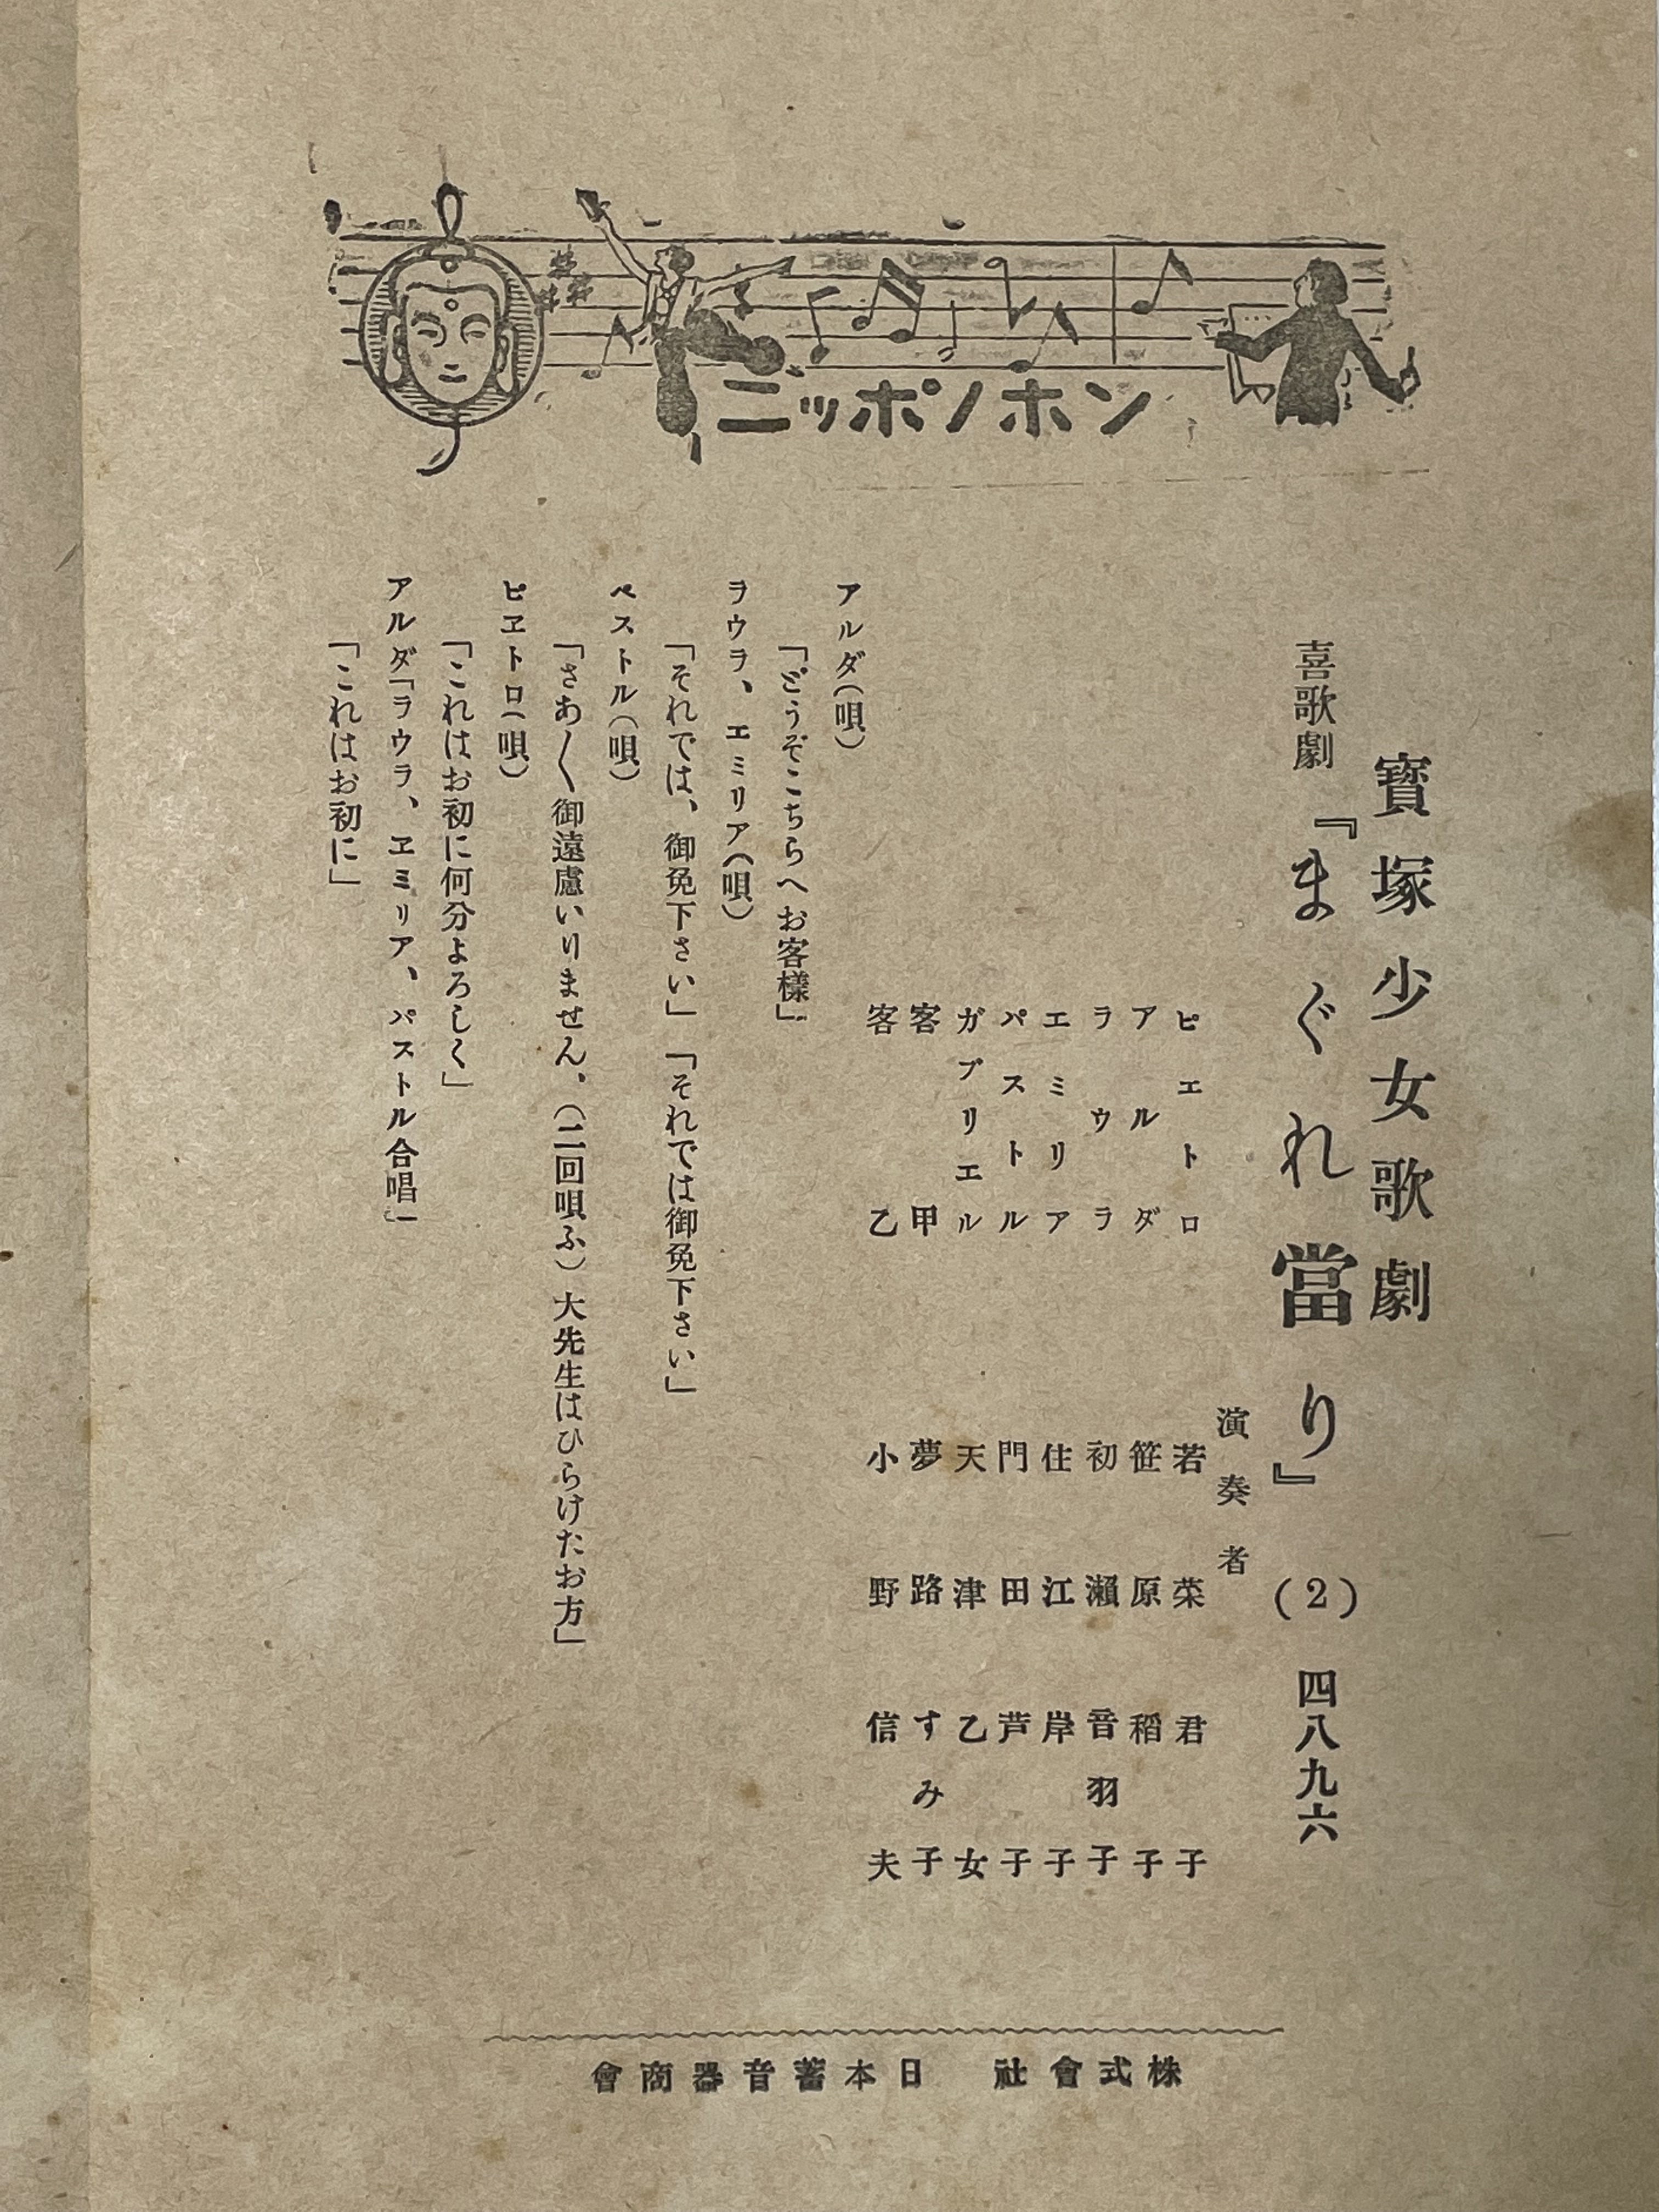 ニッポノホン
寶塚少女歌劇
喜歌劇『まぐれ當り』(2) 四八九六
演奏者
ピエトロ 若菜君子
アルダ 笹原稻子
ラウラ 初瀬音羽子
エミリア 住江岸子
パストル 門田芦子
ガブリエル 天津乙女
客甲 夢路すみ子
客乙 小野信夫
アルダ(唄)
「どうぞこちらへお客樣」
ラウラ、エミリア(唄)
「それでは、御免下さい」「それでは御免下さい」
ペストル(唄)
「さあ〱御遠慮いりません、(二回唄ふ)大先生はひらけたお方」
ピヱトロ(唄)
「これはお初に何分よろしく」
アルダ「ラウラ、ヱミリア、パストル合唱」
「これはお初に」
株式會社 日本蓄音器商會